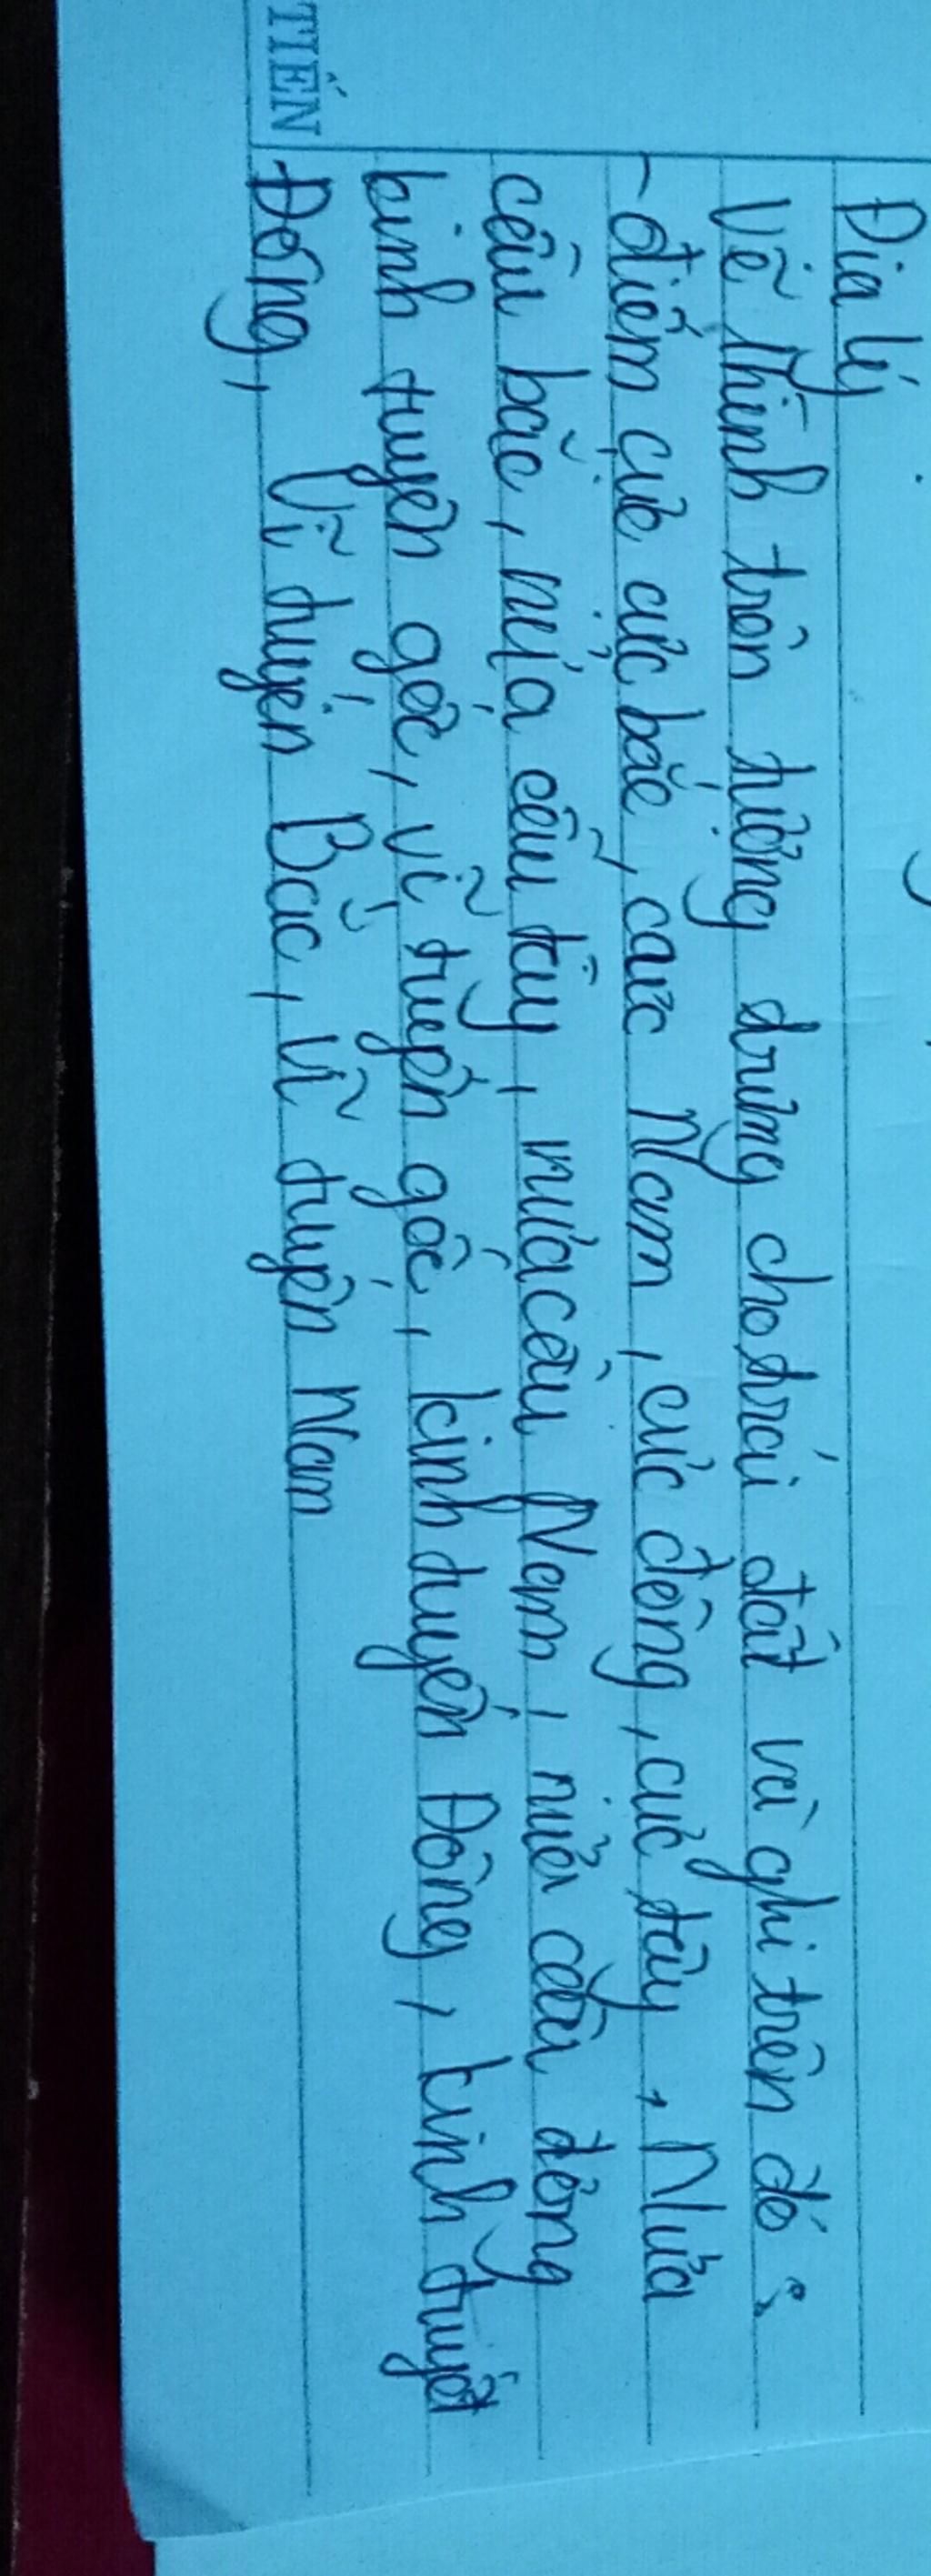 TIẾN
Địa lý
Vẽ hình tròn tượng trưng cho trái đất và ghi trên đó:
- điểm cực cực bắc, cực Nam, cực đông, cực tây, Nửa
cầu bắc, nửa cầu tây, nửa cầu Nam, nửa cầu đông
kinh tuyến gốc, vĩ tuyến gốc, kinh tuyến Đông, kinh tuyết
Đông, Vĩ tuyến Bắc, vĩ tuyến Nam